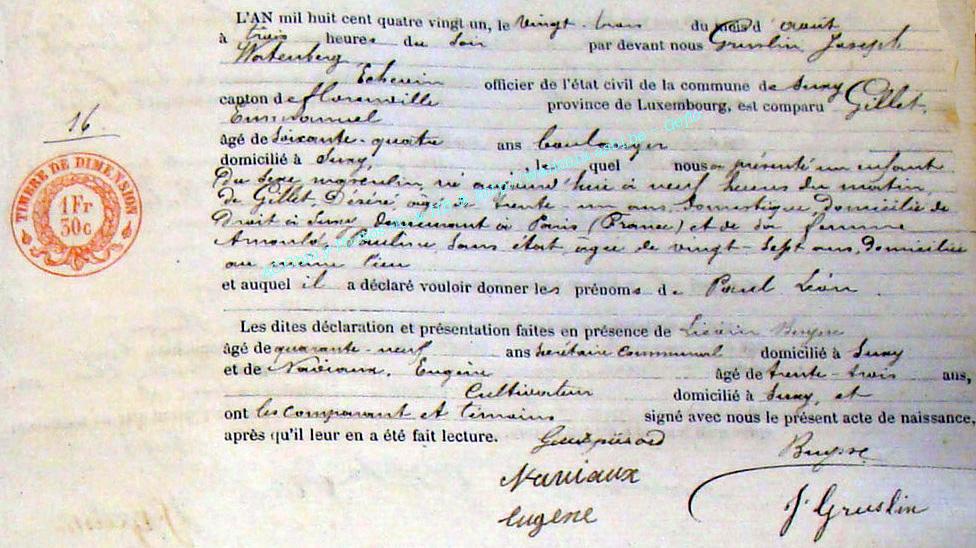 L'AN mil huit cent quatre vingt un, le vingt-trois du mois d'août
à trois heures du soir par devant nous Gruslin Joseph
Wortenberg
Echevin officier de l'état civil de la commune de Suxy
canton de Florenville province de Luxembourg, est comparu Gillet,
Emmanuel
16
âgé de soixante-quatre ans boulanger
domicilié à Suxy, le quel nous a présenté un enfant
du sexe masculin, né aujourd'hui à neuf heures du matin
de Gillet, Désiré, âgé de trente-un ans, domestique domicilié de
Droit à Suxy demeurant à Paris (France) et de sa femme
Arnould, Pauline, sans état, agée de vingt-sept ans, domiciliée
au même lieu
et auquel il a déclaré vouloir donner les prénoms de Paul Léon
TIMBRE DE DIMENSION
1 Fr
30 c
Les dites déclaration et présentation faites en présence de Buysse
âgé de quarante-neuf ans secrétaire communal domicilié à Suxy
et de Naviaux, Eugène âgé de trente-trois ans,
Cultivateur domicilié à Suxy, et
ont les comparant et témoins signé avec nous le présent acte de naissance,
après qu'il leur en a été fait lecture.
Buysse
Naviaux
Eugène
J. Gruslin